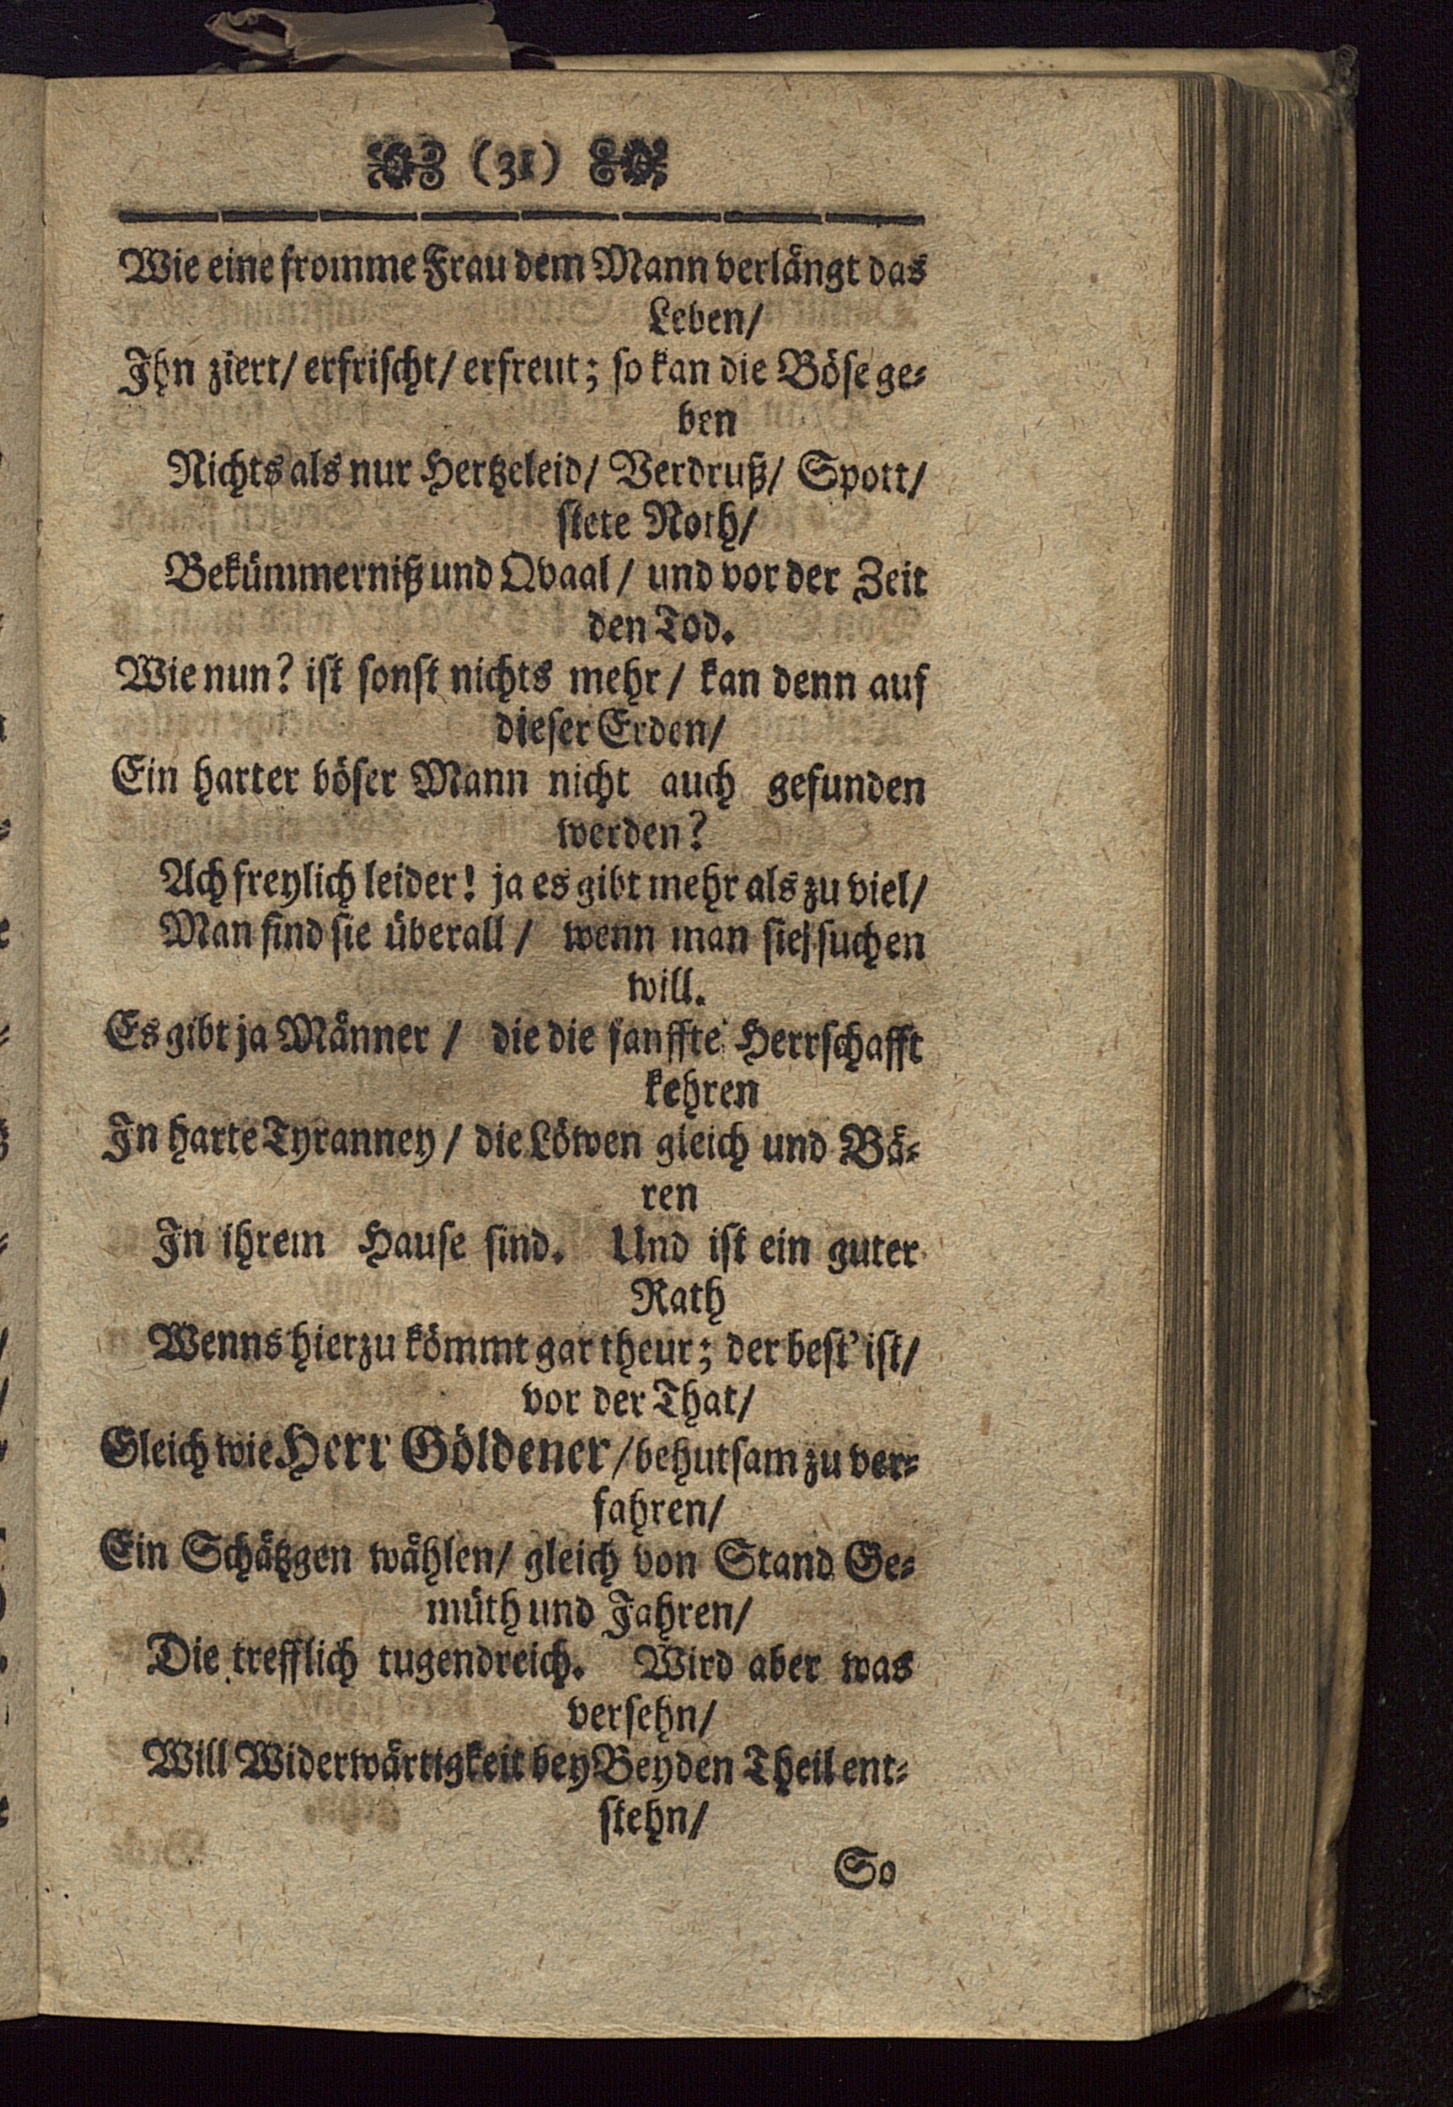 (31)
Wie eine fromme Frau dem Mann verlängt das
Leben/
Ihn ziert/ erfrischt/ erfreut; so kan die Böse ge-
ben
Nichts als nur Hertzeleid/ Verdruß/ Spott/
stete Noth/
Bekümmerniß und Qvaal/ und vor der Zeit
den Tod.
Wie nun? ist sonst nichts mehr/ kan denn auf
dieser Erden/
Ein harter böser Mann nicht auch gefunden
werden?
Ach freylich leider! ja es gibt mehr als zu viel/
Man find sie überall/ wenn man sie suchen
will.
Es gibt ja Männer/ die die sanffte Herrschafft
kehren
In harte Tyranney/ die Löwen gleich und Bä-
ren
In ihrem Hause sind. Und ist ein guter
Rath
Wenns hierzu kömmt gar theur; der best' ist/
vor der That/
Gleich wie Herr Göldener/ behutsam zu ver-
fahren/
Ein Schätzgen wählen/ gleich von Stand Ge-
müth und Jahren/
Die trefflich tugendreich. Wird aber was
versehn/
Will Widerwärtigkeit bey Beyden Theil ent-
stehn/
So